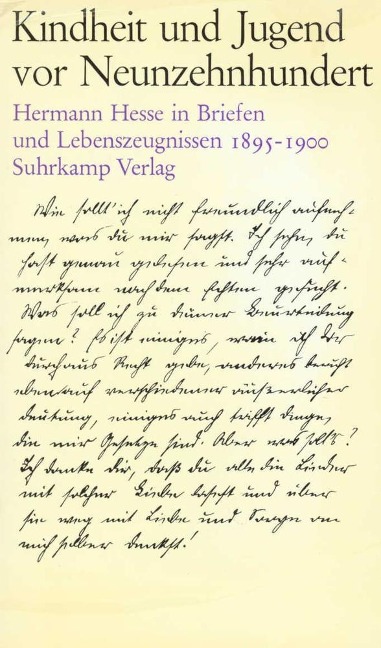 Kindheit und Jugend
vor Neunzehnhundert
Hermann Hesse in Briefen
und Lebenszeugnissen 1895-1900
Suhrkamp Verlag
Wie sollt' ich nicht freundlich aufneh-
men, was du mir sagst. Ich sehe, du
hast genau gelesen und sehr auf-
merksam nach dem Echten gesucht.
Was soll ich zu deiner Beurteilung
sagen? Es ist einiges, worin ich dir
durchaus Recht gebe, anderes beruht
eben auf verschiedener
deutung, einiges auch trifft Dinge,
die mir Gesetze sind. Aber was soll's?
Ich danke dir, daß du alle die Lieder
mit solcher Liebe lasest und über
sie weg mit Liebe und Sorge an
mich selber denkst!